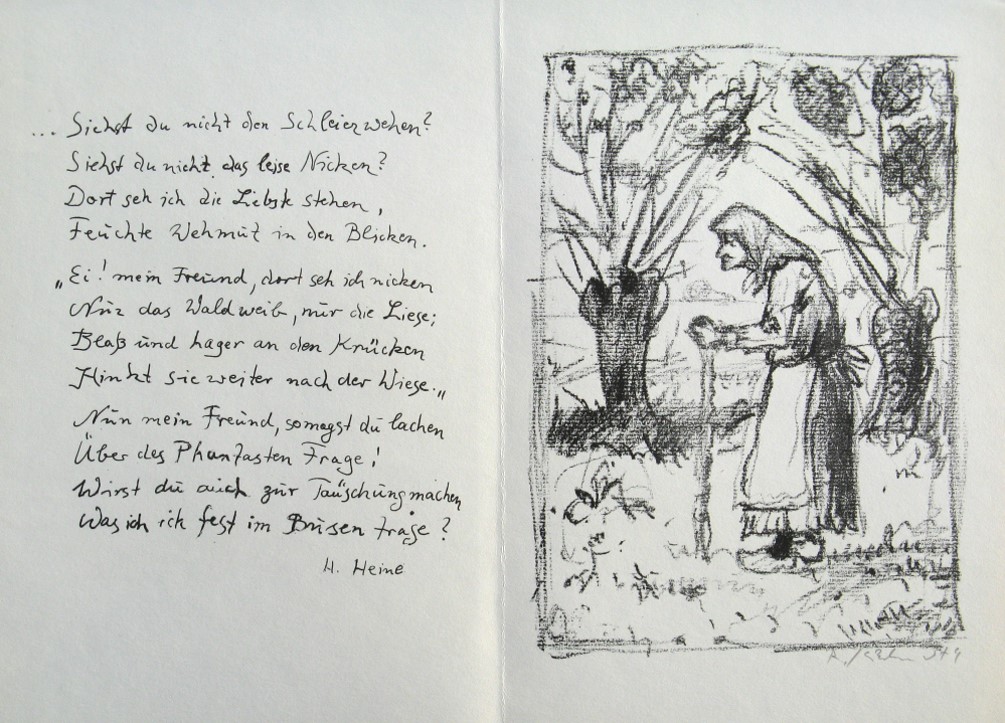 ... Siehst du nicht den Schleier wehen?
Siehst du nicht das leise Nicken?
Dort seh ich die Liebste stehen,
Feuchte Wehmut in den Blicken.
„Ei! mein Freund, dort seh ich nicken
Nur das Waldweib, nur die Liese;
Blaß und hager an den Krücken
Hinkt sie weiter nach der Wiese.„
Nun mein Freund, so magst du lachen
Über des Phantasten Frage!
Wirst du auch zur Täuschung machen
Was ich ich fest im Busen trage?
H. Heine